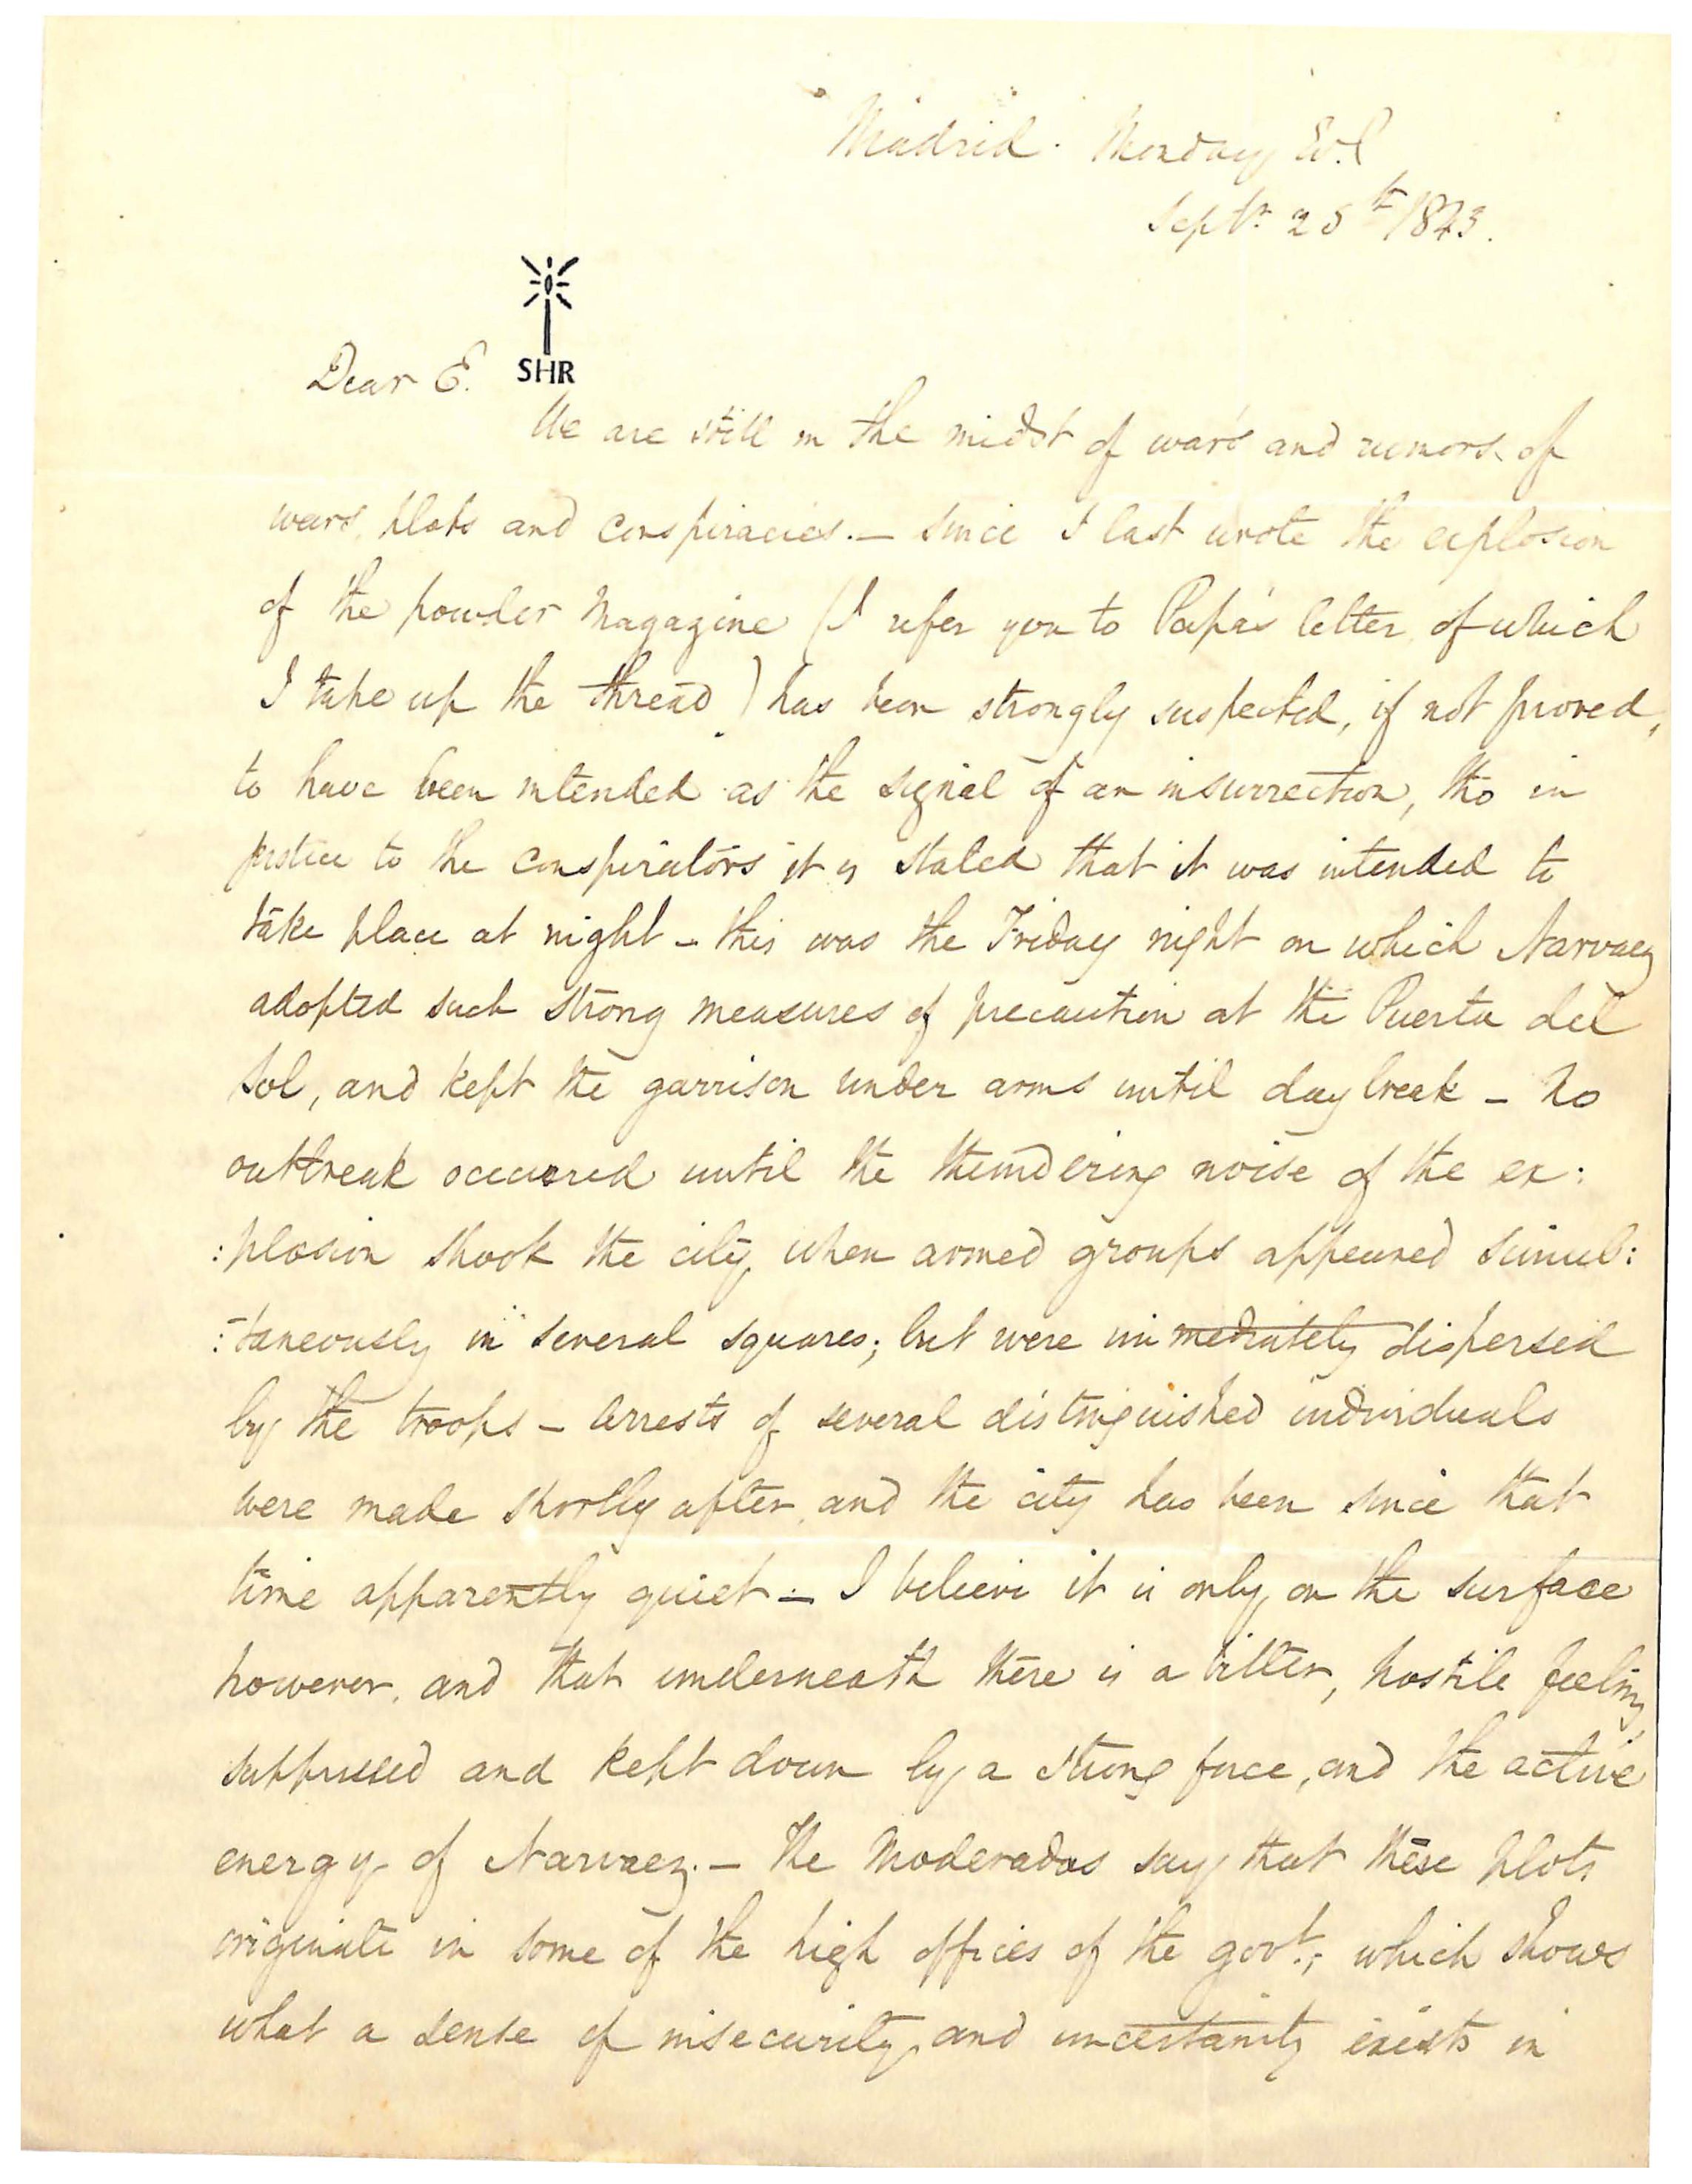 Madrid. Monday Ev.g
Septr. 25th 1843.
SHR
Dear E.
We are still in the midst of wars and rumors of
wars, plots and conspiracies. — Since I last wrote the explosion
of the powder Magazine (I refer you to Papa's letter, of which
I take up the thread) has been strongly suspected, if not proved,
to have been intended as the signal of an insurrection, tho in
justice to the conspirators it is stated that it was intended to
take place at night – this was the Friday night on which Narvaez
adopted such strong measures of precaution at the Puerta del
Sol, and kept the garrison under arms until daybreak – No
outbreak occurred until the thundering noise of the ex:
:plosion shook the city, when armed groups appeared simul:
:taneously in several squares; but were immediately dispersed
by the troops – Arrests of several distinguished individuals
were made shortly after, and the city has been since that
time apparently quiet – I believe it is only on the surface
however, and that underneath there is a bitter, hostile feeling,
suppressed and kept down by a strong force, and the active
energy of Narvaez. – The Moderados say that these plots
originate in some of the high offices of the govt.; which shows
what a sense of insecurity, and uncertainty exists in